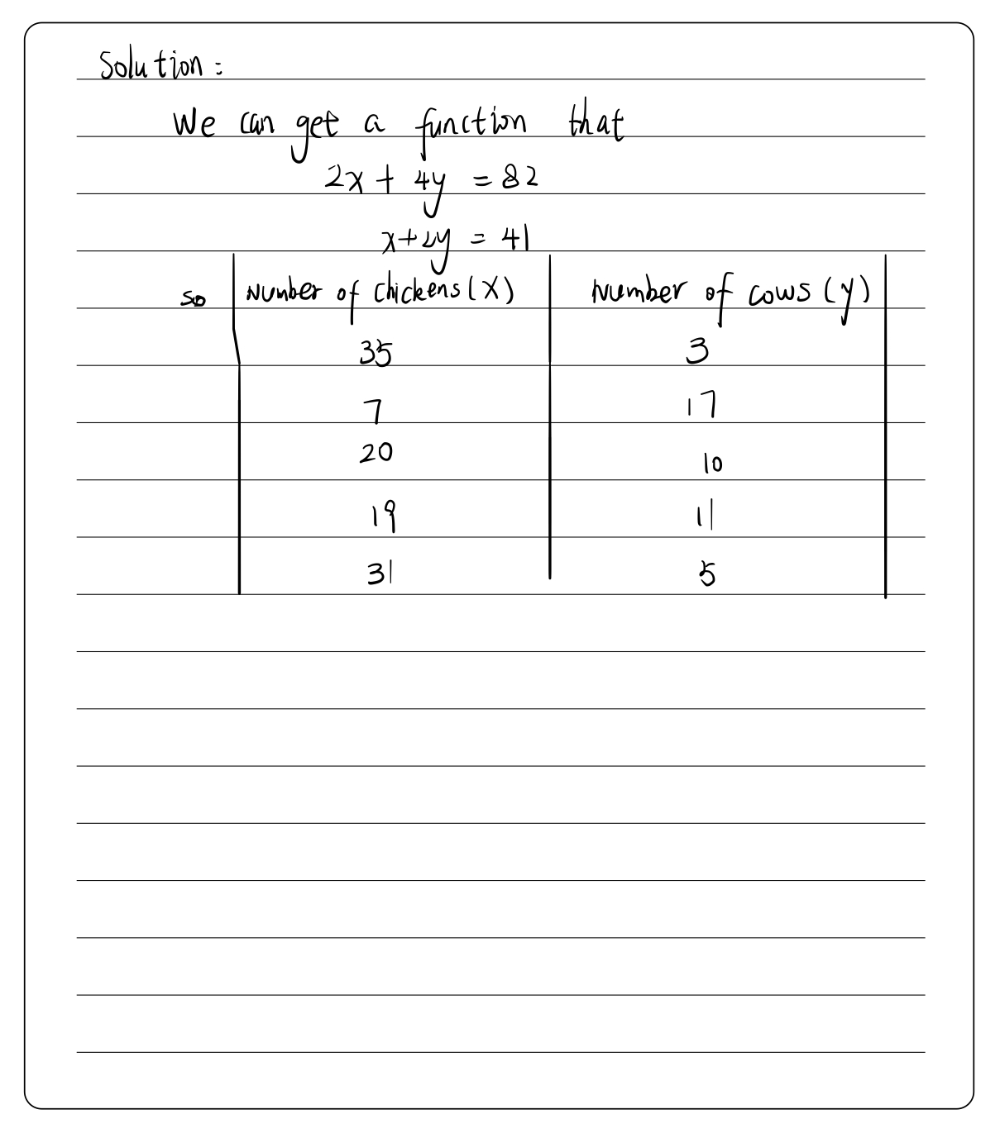 Solution:
We can get a function that
2x + 4y = 82
x+2y = 41
so Number of chickens (X) Number of cows (y)
35 3
7 17
20 10
19 11
31 5